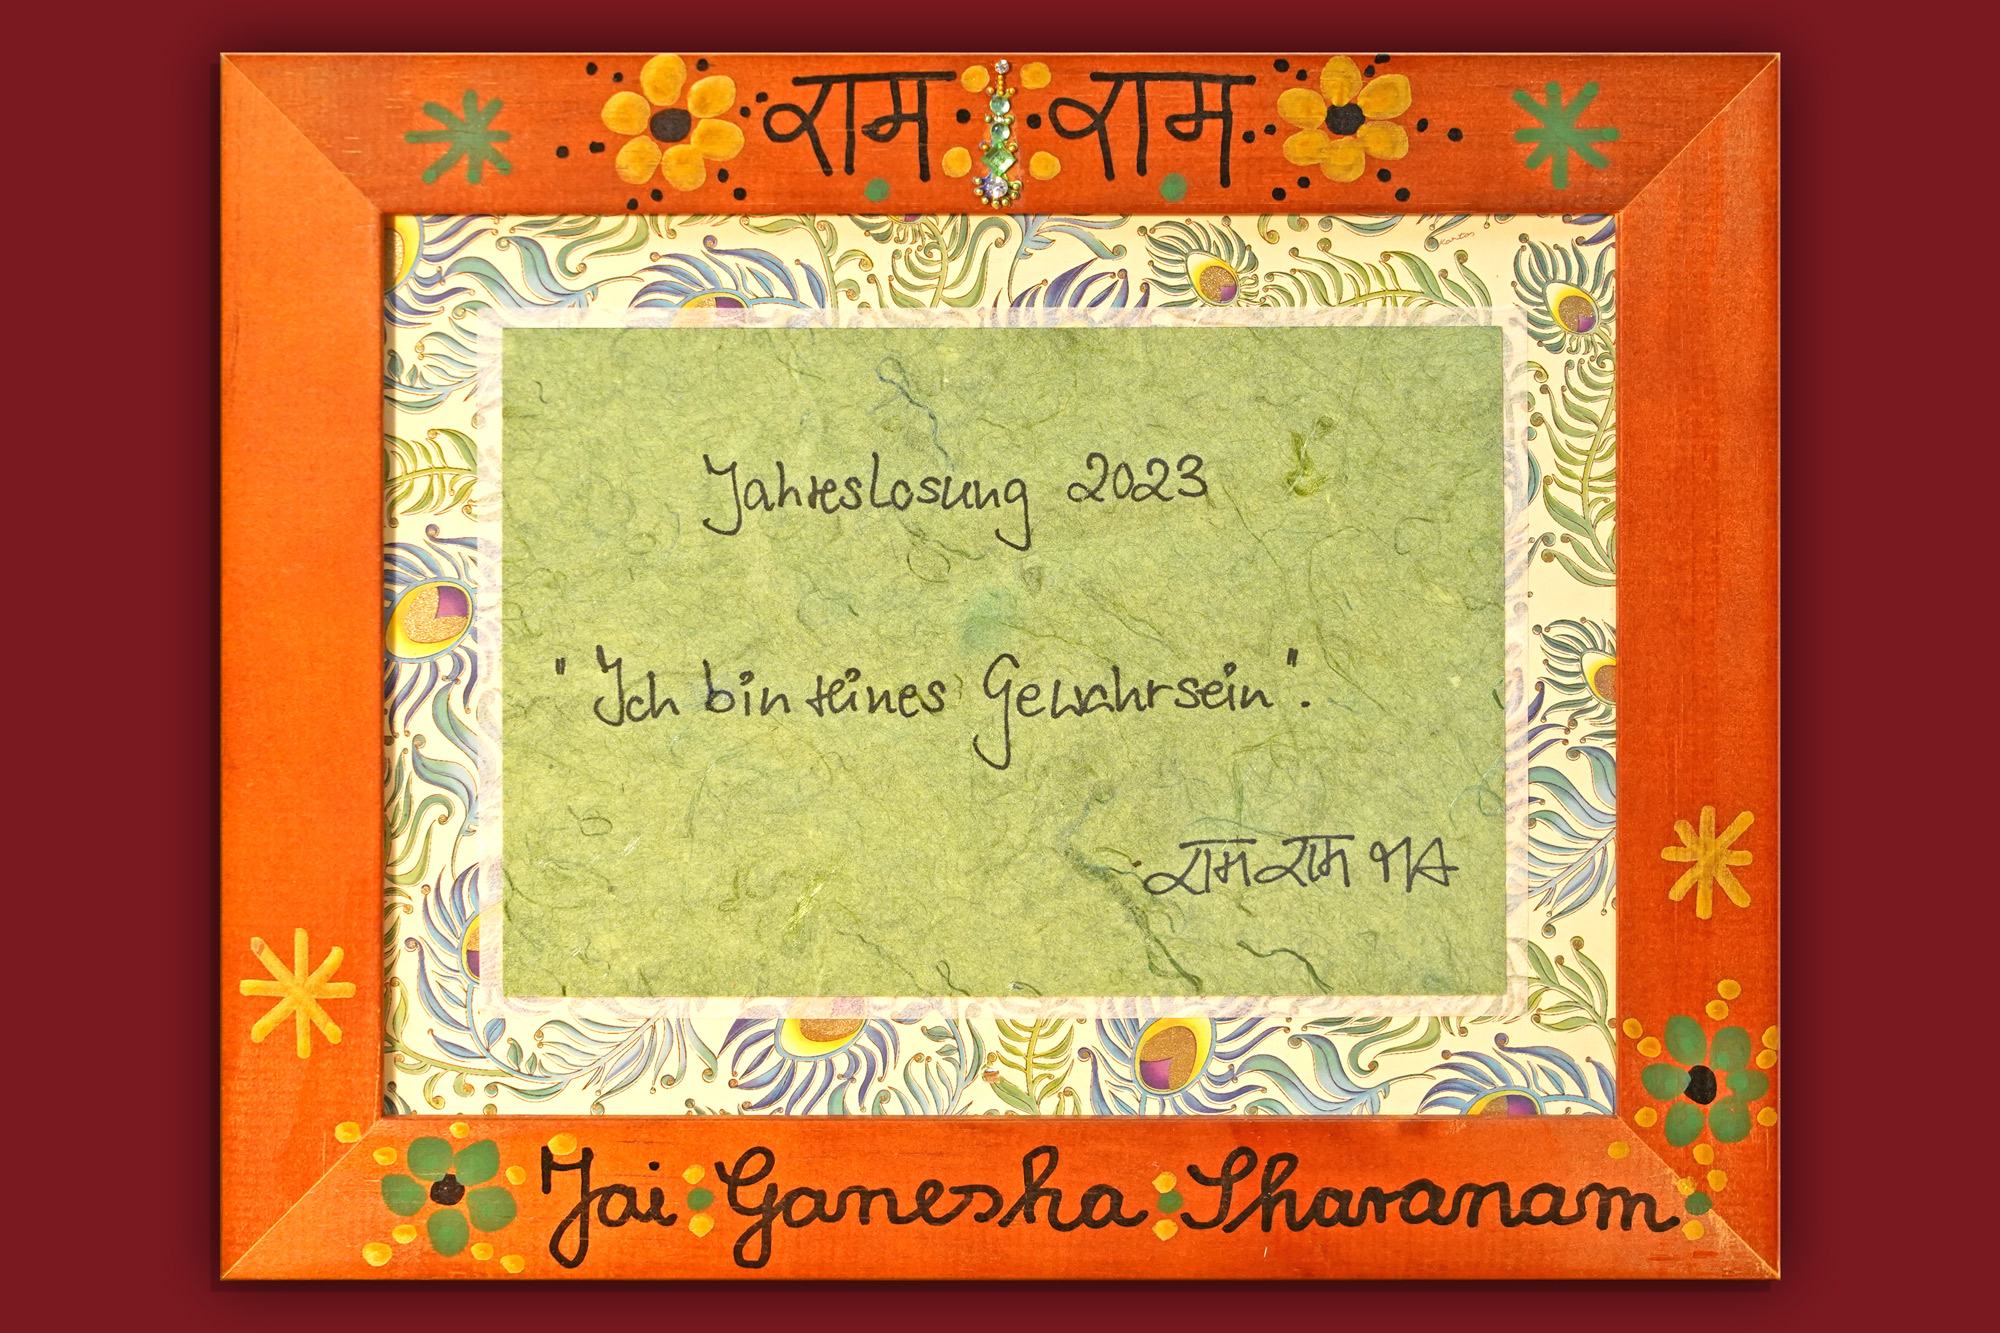 राम राम
Jahreslosung 2023
"Ich bin reines Gewahrsein".
राम राम MA
Jai Ganesha Sharanam